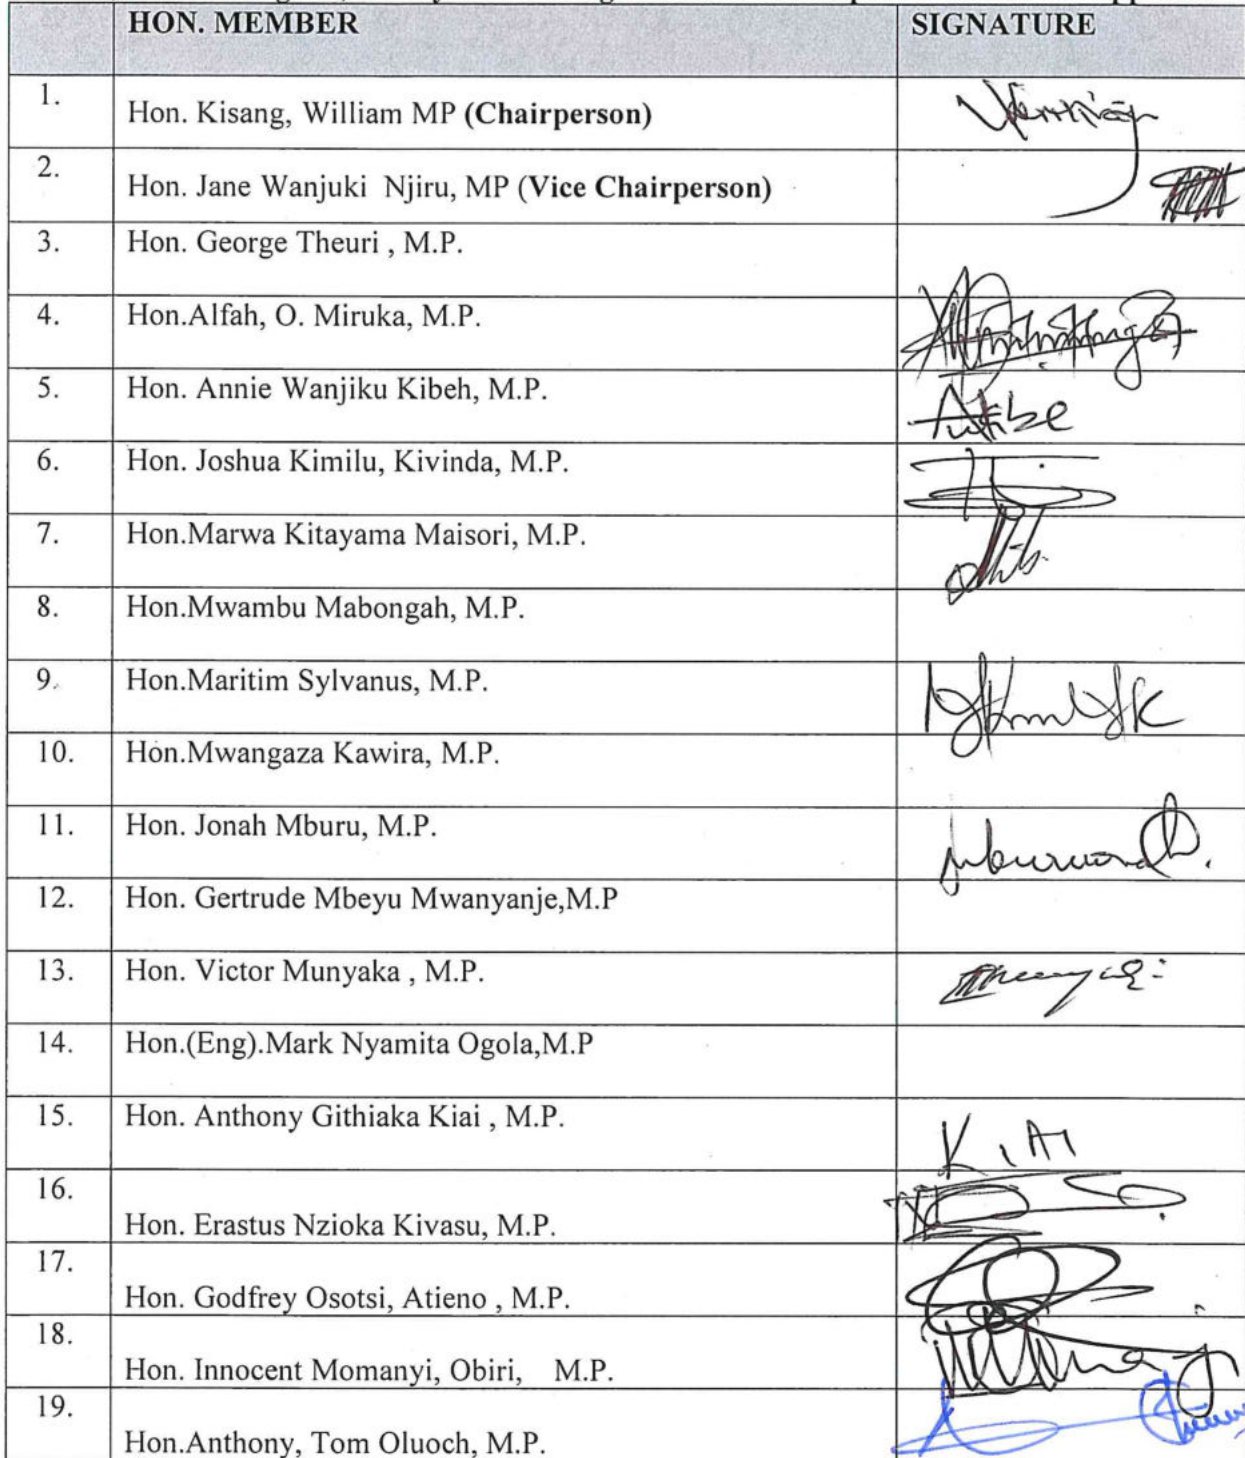 HON. MEMBER SIGNATURE
1. Hon. Kisang, William MP (Chairperson)
2. Hon. Jane Wanjuki Njiru, MP (Vice Chairperson)
3. Hon. George Theuri , M.P.
4. Hon.Alfah, O. Miruka, M.P.
5. Hon. Annie Wanjiku Kibeh, M.P.
6. Hon. Joshua Kimilu, Kivinda, M.P.
7. Hon.Marwa Kitayama Maisori, M.P.
8. Hon.Mwambu Mabongah, M.P.
9. Hon.Maritim Sylvanus, M.P.
10. Hon.Mwangaza Kawira, M.P.
11. Hon. Jonah Mburu, M.P.
12. Hon. Gertrude Mbeyu Mwanyanje,M.P
13. Hon. Victor Munyaka , M.P.
14. Hon.(Eng).Mark Nyamita Ogola,M.P
15. Hon. Anthony Githiaka Kiai , M.P. KIAI
16. Hon. Erastus Nzioka Kivasu, M.P.
17. Hon. Godfrey Osotsi, Atieno , M.P.
18. Hon. Innocent Momanyi, Obiri, M.P.
19. Hon.Anthony, Tom Oluoch, M.P.